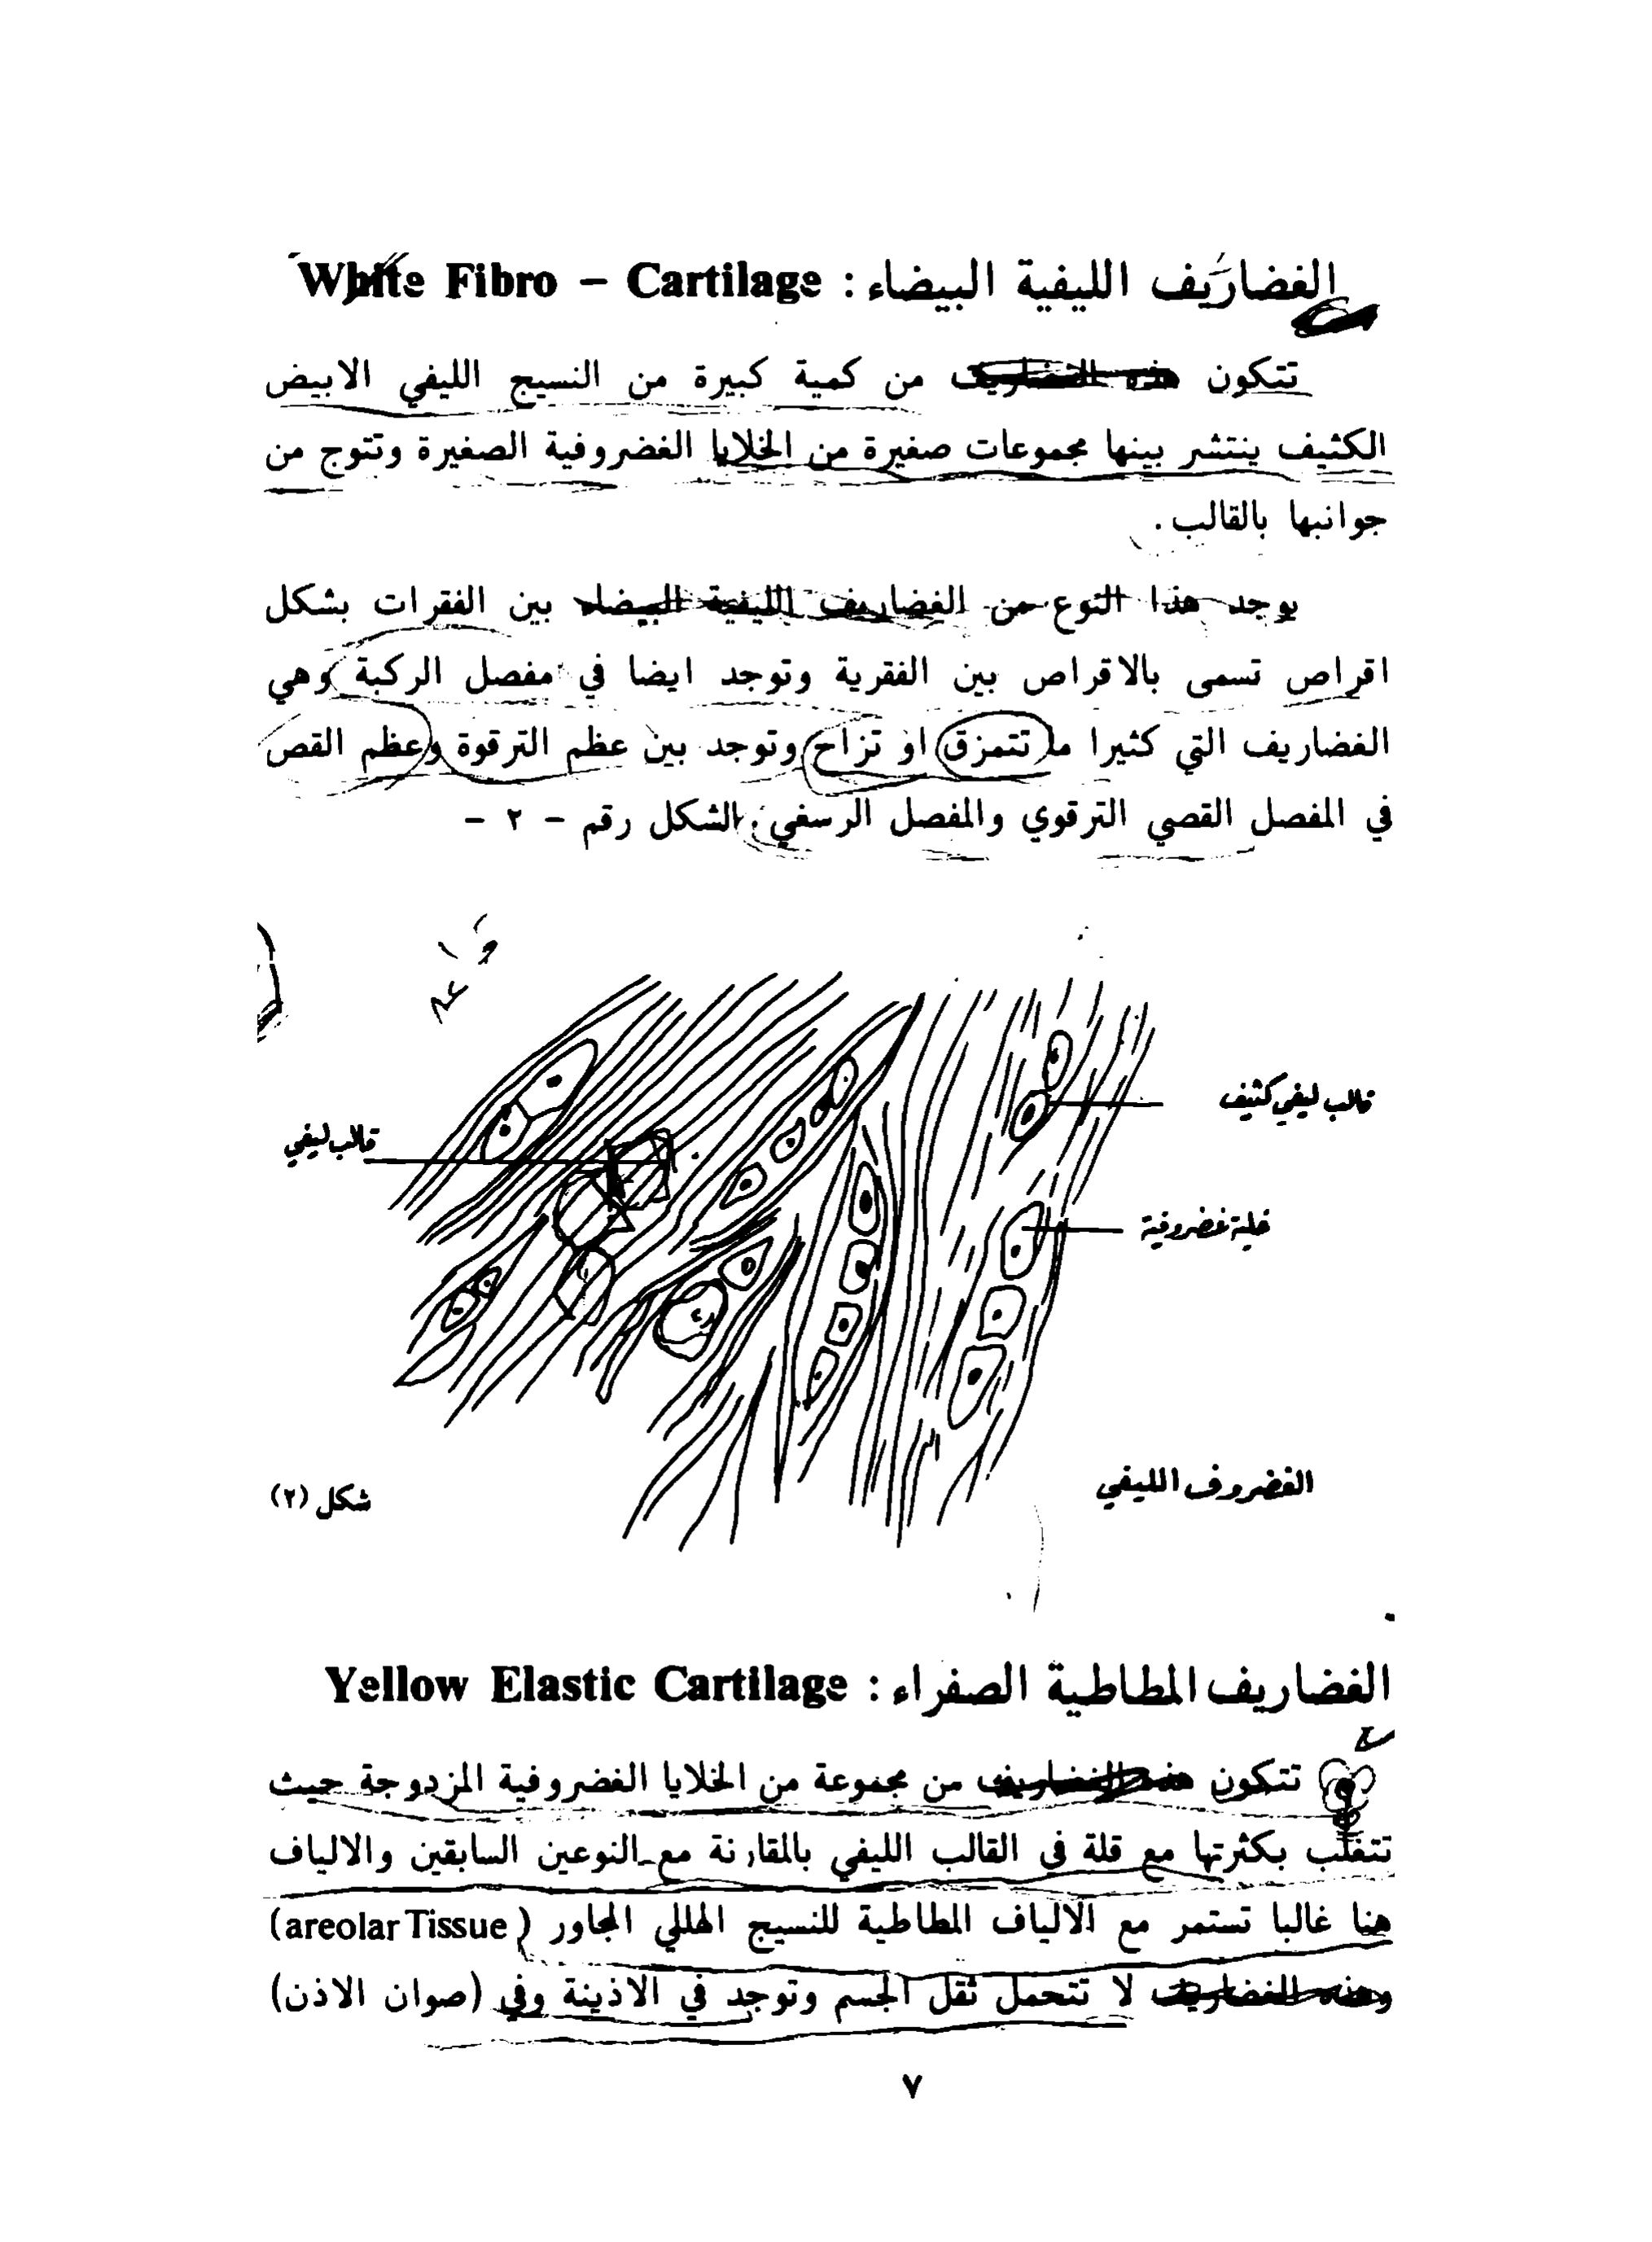 الغضاريف الليفية البيضاء : White Fibro – Cartilage
تتكون هذه الغضاريف من كمية كبيرة من النسيج الليفي الابيض
الكثيف ينتشر بينها مجموعات صغيرة من الخلايا الغضروفية الصغيرة وتتوج من
جوانبها بالقالب .
يوجد هذا النوع من الغضاريف الليفية البيضاء بين الفقرات بشكل
اقراص تسمى بالاقراص بين الفقرية وتوجد ايضا في مفصل الركبة وهي
الغضاريف التي كثيرا ما تتمزق او تزاح وتوجد بين عظم الترقوة وعظم القص
في المفصل القصي الترقوي والمفصل الرسغي . الشكل رقم - ٢ -
قالب ليفي كثيف
قالب ليفي
خلية غضروفية
الغضروف الليفي
شكل (٢)
الغضاريف المطاطية الصفراء : Yellow Elastic Cartilage
تتكون هذه الغضاريف من مجموعة من الخلايا الغضروفية المزدوجة حيث
تتغلب بكثرتها مع قلة في القالب الليفي بالمقارنة مع النوعين السابقين والالياف
هنا غالبا تستمر مع الالياف المطاطية للنسيج الهللي المجاور (areolar Tissue)
وهذه الغضاريف لا تتحمل ثقل الجسم وتوجد في الاذينة وفي (صوان الاذن)
٧